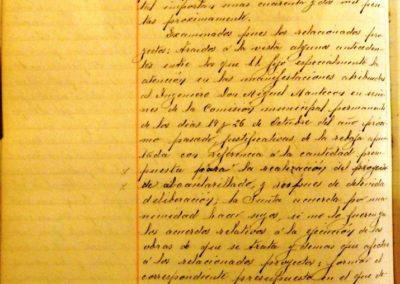 tal importan unas cuarenta y dos mil pese
tas proximamente.
Examinados pues los relacionados pro
yectos; traidos a la vista algunos anteceden
tes entre los que se fijó especialmente la
atención en las manifestaciones atribuidas
al Ingeniero Don Miguel Mantecon en sesio
nes de la Comisión municipal permanente
de los dias 19 y 26 de Octubre del año próxi
mo pasado, justificativas de la rebaja
con referencia a la cantidad presu
puesta para la realización del proyecto
de alcantarillado, y despues de detenida
deliberación; la Junta acuerda por una
nimidad hacer suyos, si no lo fueren ya
los acuerdos relativos a la ejecución de las
obras de que se trata y demas que afectan
a los relacionados proyectos; formar el
correspondiente presupuesto en el que se